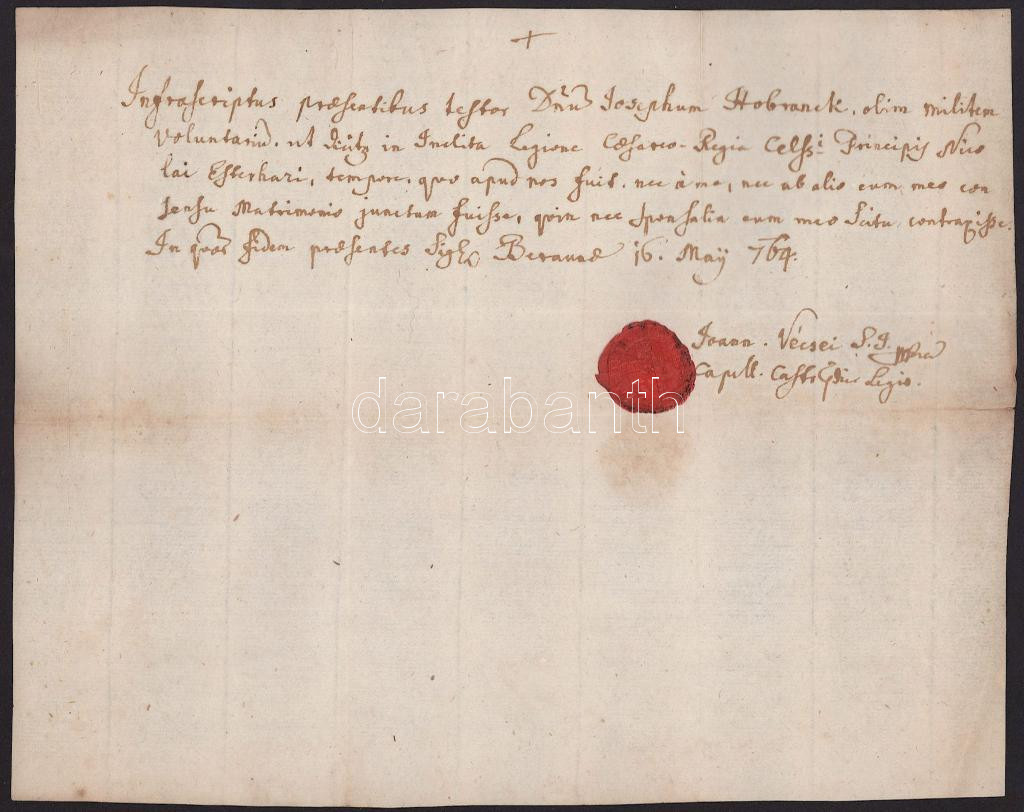 +
Infrascriptus præsentibus testor Dnũ Josephum Hobranck, olim militem
voluntariũ, ut dicitʒ in Inclita Legione Cæsareo-Regia Celssi Principis Nico
lai Esterhazi, tempore, quo apud nos fuit, nec à me, nec ab alio cum meo con
sensu Matrimonio junctum fuisse, quin nec sponsalia cum meo scitu contraxisse.
In quor̃ fidem præsentes Beraunæ 16. May 764.
Joann. Vécsei S.J. mpria
Capell. Castr. Legio.
darabanth